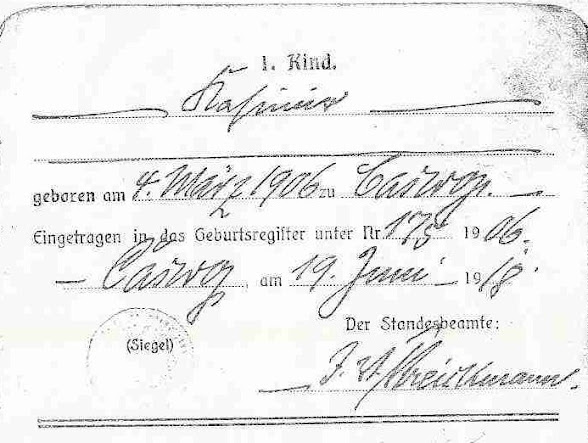 1. Kind.
Kasimir
geboren am 4. März 1906 zu Castrop.
Eingetragen in das Geburtsregister unter Nr. 175 1906.
Castrop, am 19. Juni 1918.
Der Standesbeamte:
(Siegel)
J. V.